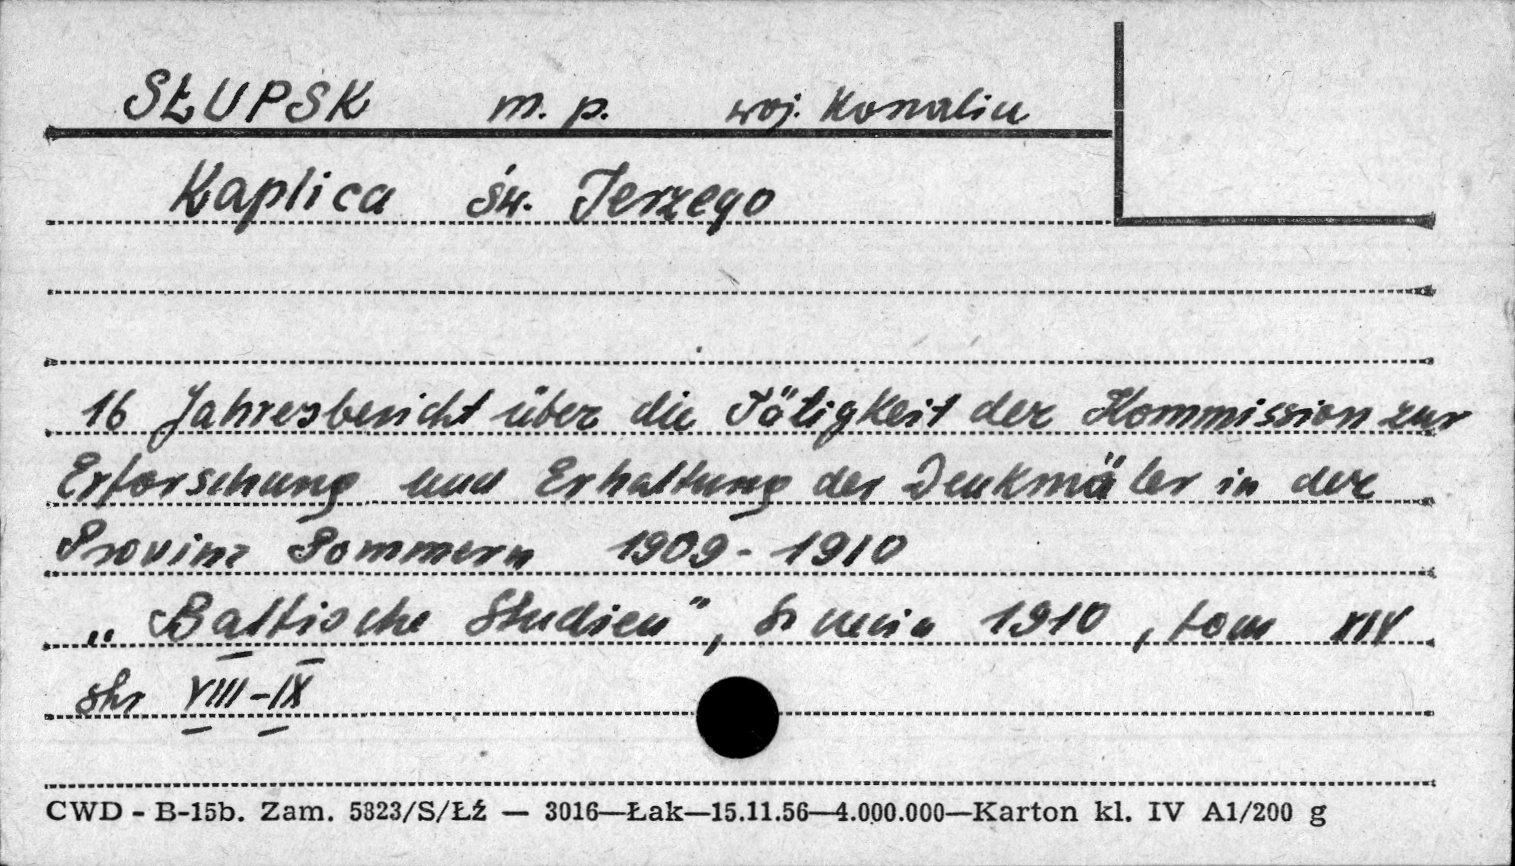 SŁUPSK m. p. woj. Koszalin
Kaplica św. Jerzego
16 Jahresbericht über die Tätigkeit der Kommission zur
Erforschung und Erhaltung der Denkmäler in der
Provinz Pommern 1909-1910
„Baltische Studien", 1910, tom XIV
str VIII-IX
CWD - B-15b. Zam. 5823/S/Łź — 3016—Łak—15.11.56—4.000.000—Karton kl. IV A1/200 g